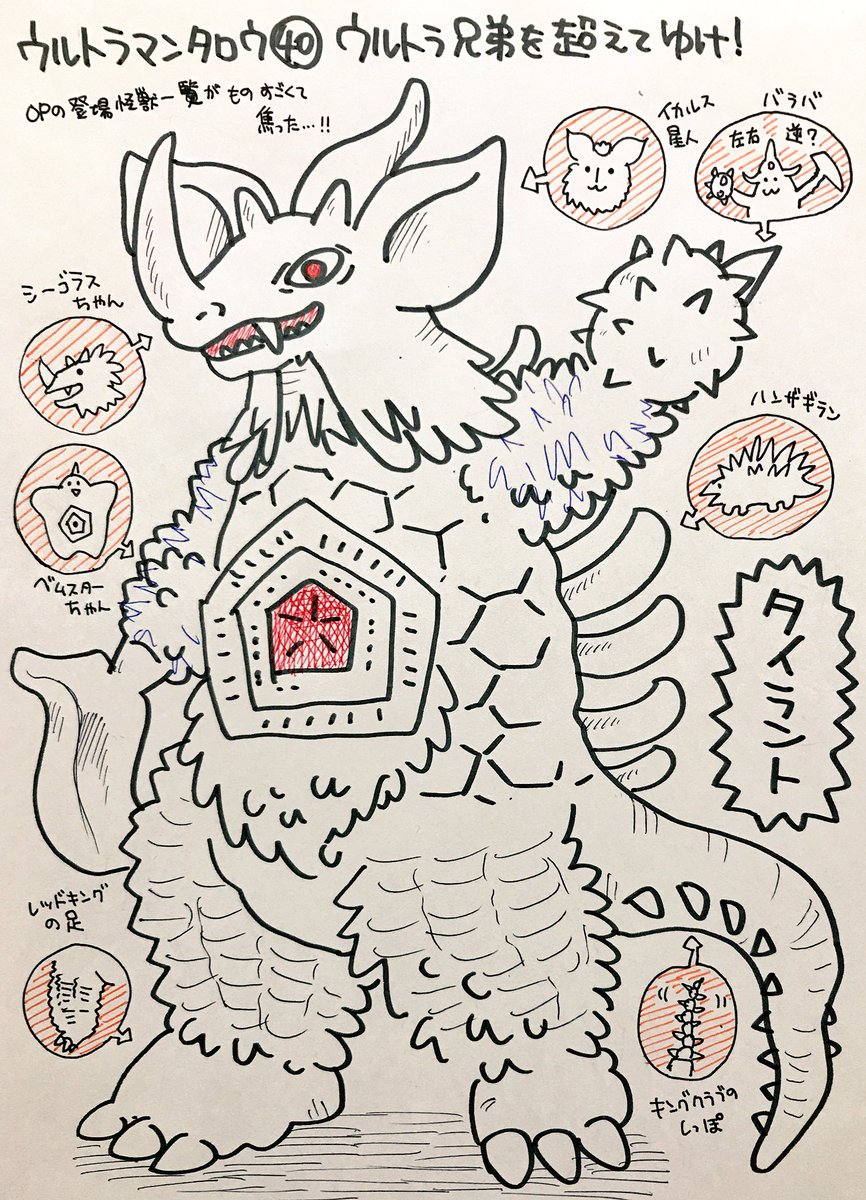 ウルトラマンタロウ㊵ ウルトラ兄弟を超えてゆけ!
OPの登場怪獣一覧がものすごくて
焦った…!!
イカルス
星人
バラバ
左右 逆?
シーゴラス
ちゃん
ベムスター
ちゃん
ハンザギラン
タイラント
レッドキング
の足
キングクラブの
しっぽ